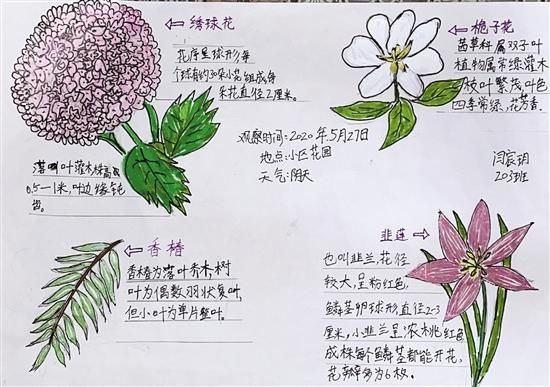 绣球花
花序呈球形,每
个球有约30朵小花组成,每
朵花直径2厘米。
落叶叶灌木,株高
0.5一1米,叶边缘钝
齿。
栀子花
茜草科属双子叶
植物属常绿灌木
枝叶繁茂,叶色
四季常绿,花芳香。
观察时间:2020年5月27日
地点:小区花园
天气:阴天
闫宸玥
203班
香椿
香椿为落叶乔木,树
叶为偶数羽状复叶,
但小叶为单片整叶。
韭莲
也叫韭兰,花径
较大,呈粉红色,
鳞茎卵球形直径2-3
厘米,小韭兰呈浓桃红色
成株每个鳞茎都能开花,
花瓣多为6枚。